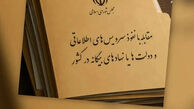 مجلس شورای اسلامی
مقابله با نفوذ سرویس‌های اطلاعاتی
و دولت‌ها یا نهادهای بیگانه در کشور